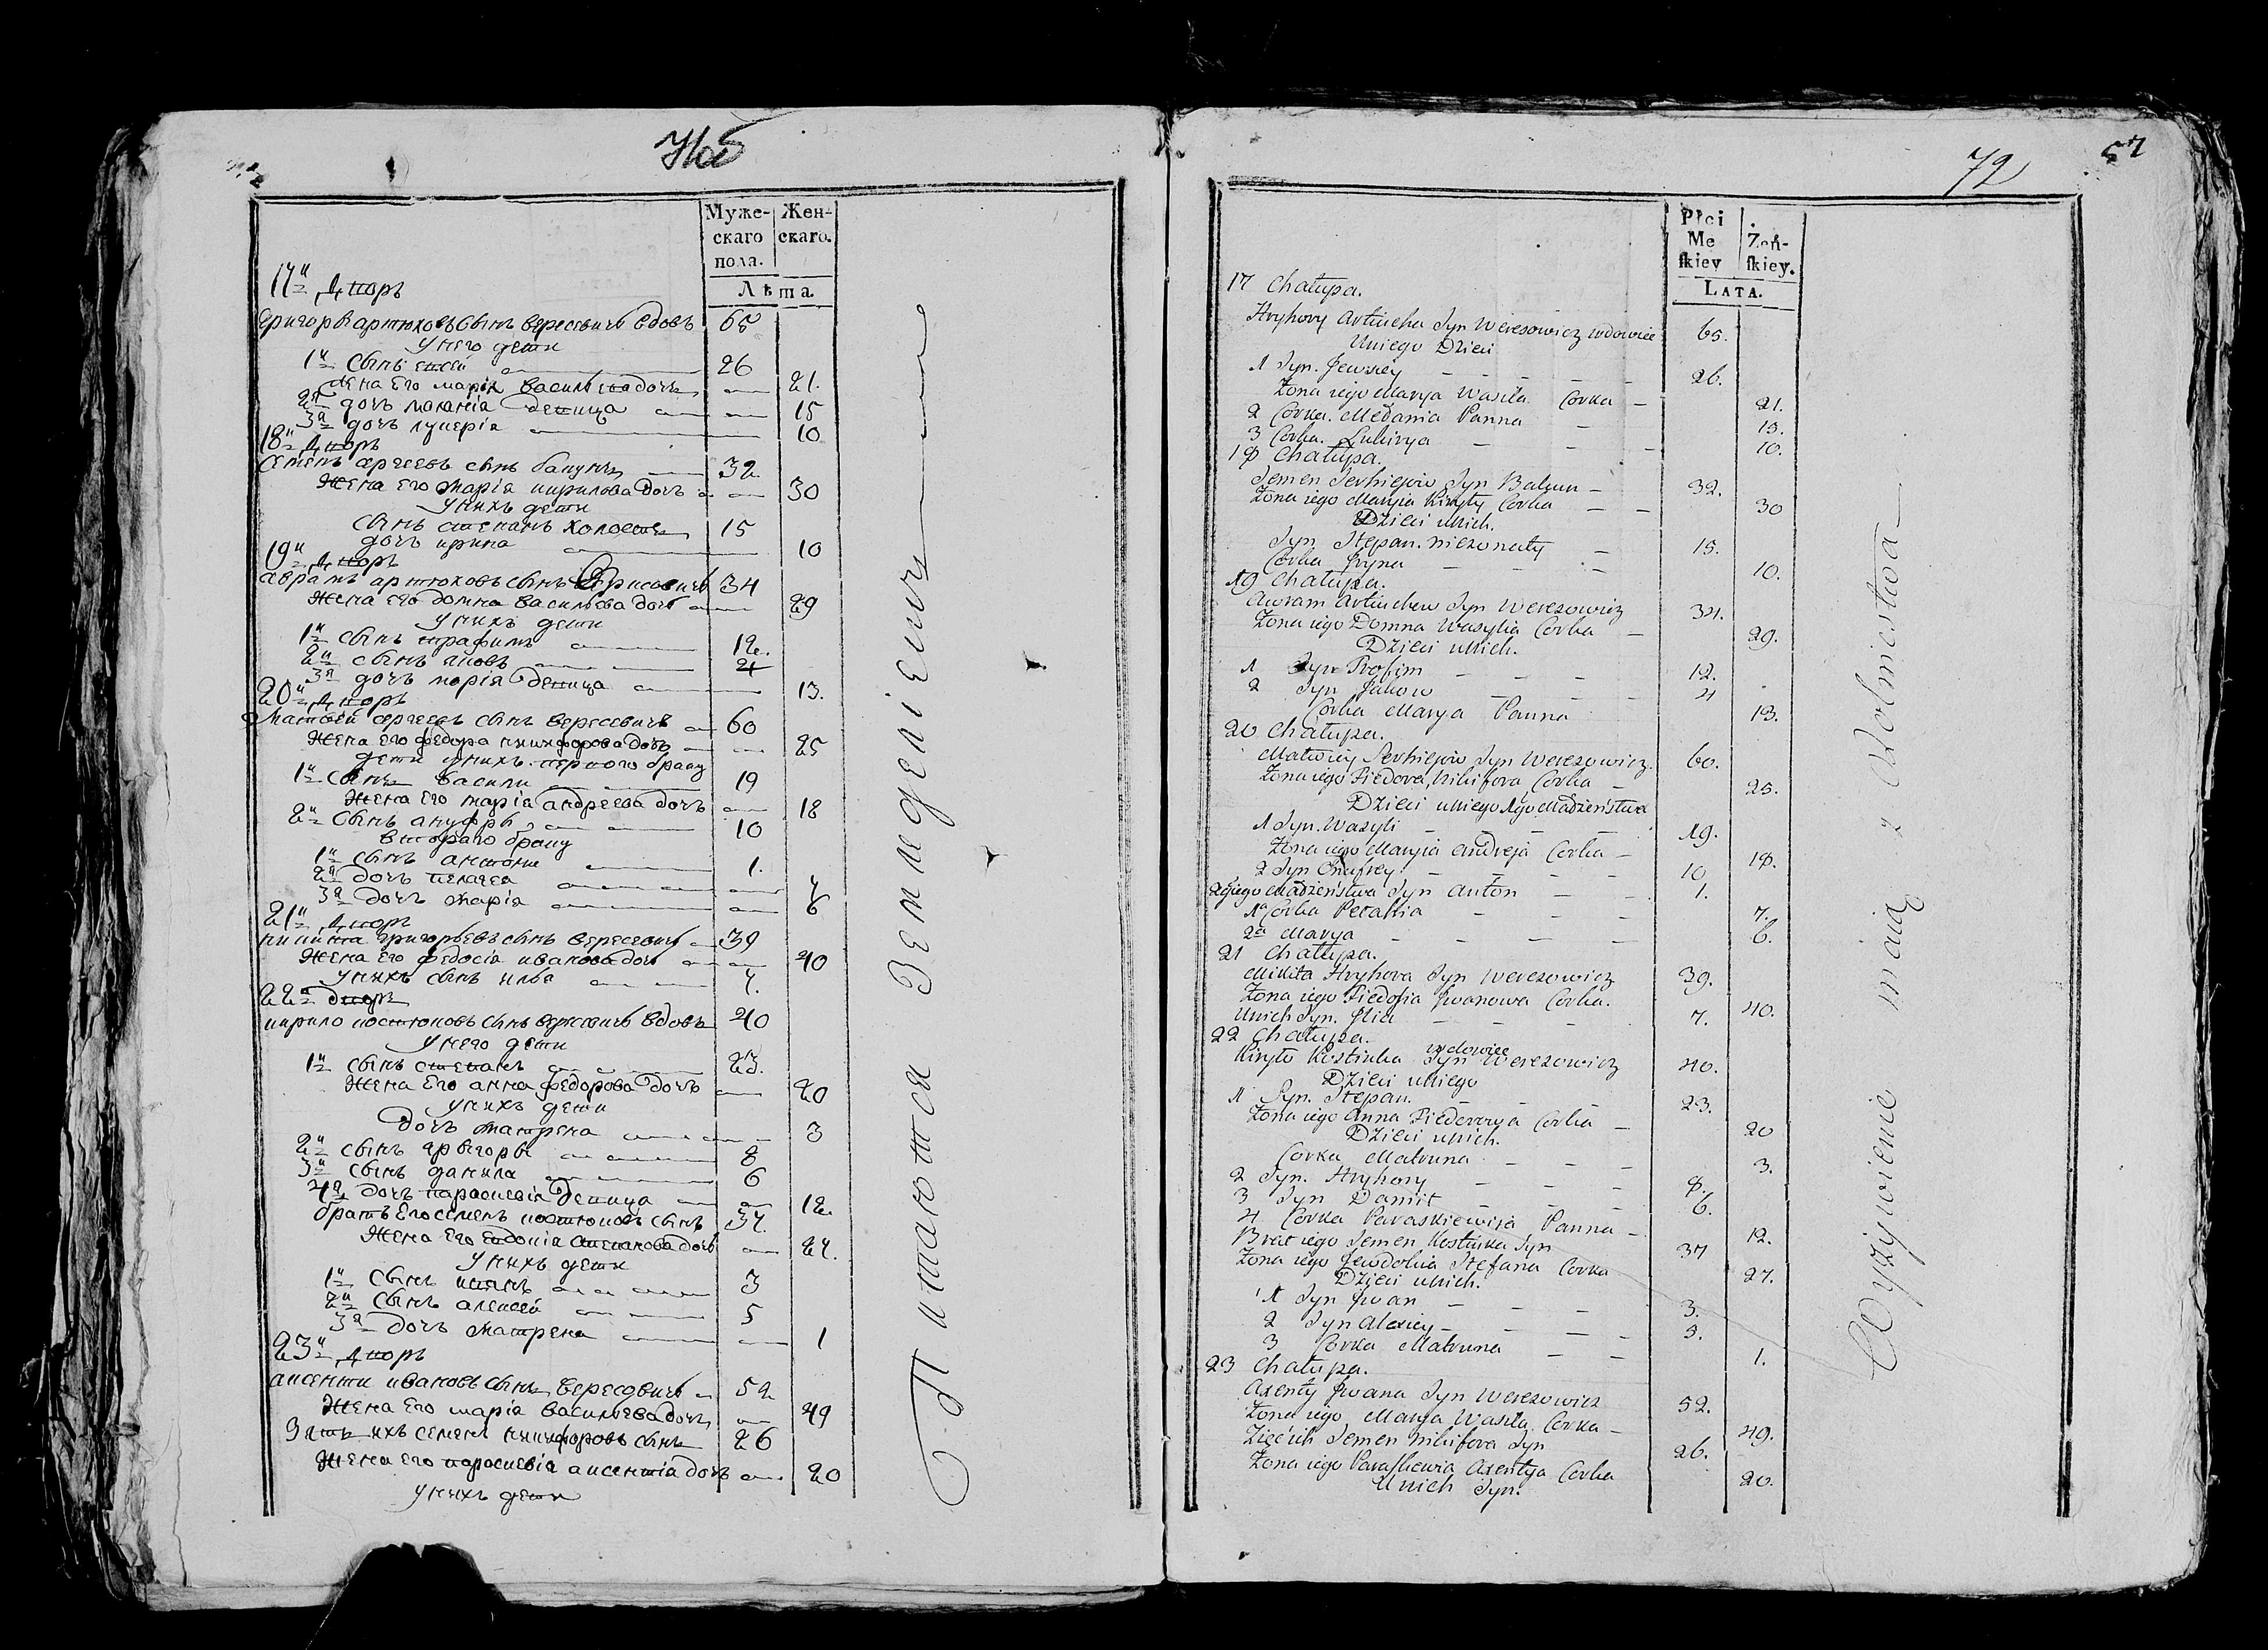 72
57
Муже-
скаго
пола.
Жен-
скаго.
Лѣта.
17й Дворъ
григори артюховъ сынъ вересевичъ вдовъ 65
у него дети
1й сынъ евсей 26
жена его мария василева дочь 21.
2я дочь малания девица 15
3я дочь лукерія 10
18й Дворъ
семенъ сергеевъ сынъ балунъ 32
жена его марія кирилова дочь 30
у нихъ дети
сынъ степанъ холостъ 15
дочь ирина 10
19й Дворъ
аврамъ артюховъ сынъ вересовичъ 34
жена его домна васильева дочь 29
у нихъ дети
1й сынъ трафимъ 12.
2й сынъ яковъ 4
3я дочь марія девица 13.
20й Дворъ
матвей сергеевъ сынъ вересевичъ 60
жена его федора никифорова дочь 25
дети у нихъ первого браку
1й сынъ василий 19
жена его марія андреева дочь 18
2й сынъ ануфри 10
второго браку
1й сынъ антонъ 1.
2я дочь пелагея 7
3я дочь марія 6
21й Дворъ
никита григорьевъ сынъ вересевичъ 39
жена его федосія иванова дочь 40
у нихъ сынъ илья 7.
22й дворъ
кирило костюковъ сынъ вересевичъ вдовъ 40
у него дети
1й сынъ степанъ 23.
жена его анна федорова дочь 20
у нихъ дети
дочь матрена 3
2й сынъ григори 8
3й сынъ данила 6
4я дочь параскевія девица 12.
братъ его семенъ костюковъ сынъ 37.
жена его евдокія степанова дочь 27.
у нихъ дети
1й сынъ иванъ 3
2й сынъ алексей 5
3я дочь матрена 1
23й Дворъ
аксенти ивановъ сынъ вересовичъ 52
жена его марія васильева дочь 49
зять ихъ семенъ никифоровъ сынъ 26
жена его параскевія аксентія дочь 20
у нихъ дети
Питаются Земледеліемъ
Płci
Mę
skiey
Żeń-
skiey.
LATA.
17 Chałupa.
Hryhory Artiucha Syn Weresowicz wdowiec 65.
U niego Dzieci
1 Syn. Jewsiey 26.
Żona iego Marya Wasila Corka 21.
2 Corka. Mełania Panna 15.
3 Corka. Łukirya 10.
18 Chałupa.
Semen Serhiejow Syn Bałun 32.
Żona iego Maryia Kiryły Corka 30
Dzieci u nich.
Syn Stepan. nieżonaty 15.
Corka Jryna 10.
19 Chałupa.
Awram Artiuchow Syn Weresowicz 34.
Żona iego Domna Wasylia Corka 29.
Dzieci u nich.
1 Syn Trofim 12.
2 Syn Jakow 4
Corka Marya Panna 13.
20 Chałupa.
Matwiey Serhiejow Syn Weresowicz. 60.
Żona iego Fiedora, Nikifora, Corka 25.
Dzieci u niego 1go Małżeństwa
1 Syn. Wasyli 19.
Żona iego Maryia Andreja Corka 18.
2 Syn Onufrey 10
2giego Małżeństwa Syn Anton 1.
1a Corka Pełahia 7.
2a Marya 6.
21 Chałupa.
Mikita Hryhora Syn Weresowicz 39.
Żona iego Fiedosia Jwanowa Corka. 40.
U nich Syn. Jlia 7.
22 Chałupa.
wdowiec
Kiryło Kostiuka Syn Weresowicz 40.
Dzieci u niego
1 Syn. Stepan. 23.
Żona iego Anna Fiedorrya Corka 20
Dzieci u nich.
Corka Matruna 3.
2 Syn. Hryhory 8.
3 Syn Daniło 6.
4 Corka Paraskiewija Panna 12.
Brat iego Semen Kostiuka Syn 37
Żona iego Jewdokia Stefana Corka 27.
Dzieci u nich.
1 Syn Jwan 3.
2 Syn Alexiey 5.
3 Corka Matruna 1.
23 Chałupa.
Axenty Jwana Syn Weresowicz 52.
Żona iego Marya Wasila Corka 49.
Zięć ich Semen Nikifora Syn 26.
Żona iego Paraskewia Axentya Corka 20.
U nich Syn.
Wyżywienie maią z Rolnictwa